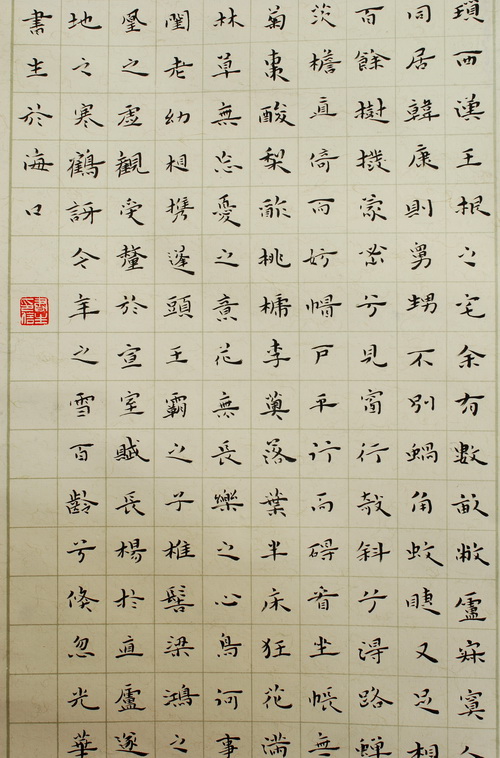 瑣西漢王根之宅余有數畝敝廬寂寞人
同居韓康則舅甥不別蝸角蚊睫又足相
百餘樹撥蒙密兮見窗行敧斜兮得路蟬
茨檐直倚而妨帽戶平行而碍眉坐帳無
菊棗酸梨酢桃榹李薁落葉半床狂花滿
林草無忘憂之意花無長樂之心鳥何事
閨老幼相携蓬頭王霸之子椎髻梁鴻之
凰之虛觀受釐於宣室賦長楊於直廬遂
地之寒鶴訝今年之雪百齡兮倏忽光華
書生於海口
書生印信